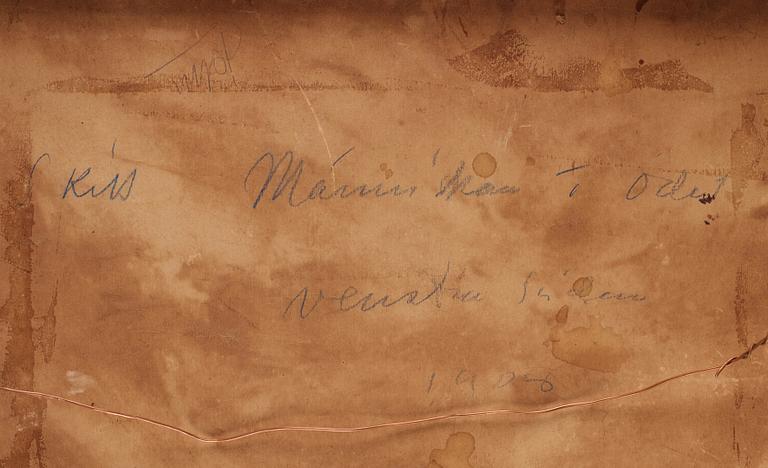 Skiss Människan i ödet
venstra sidan
1908